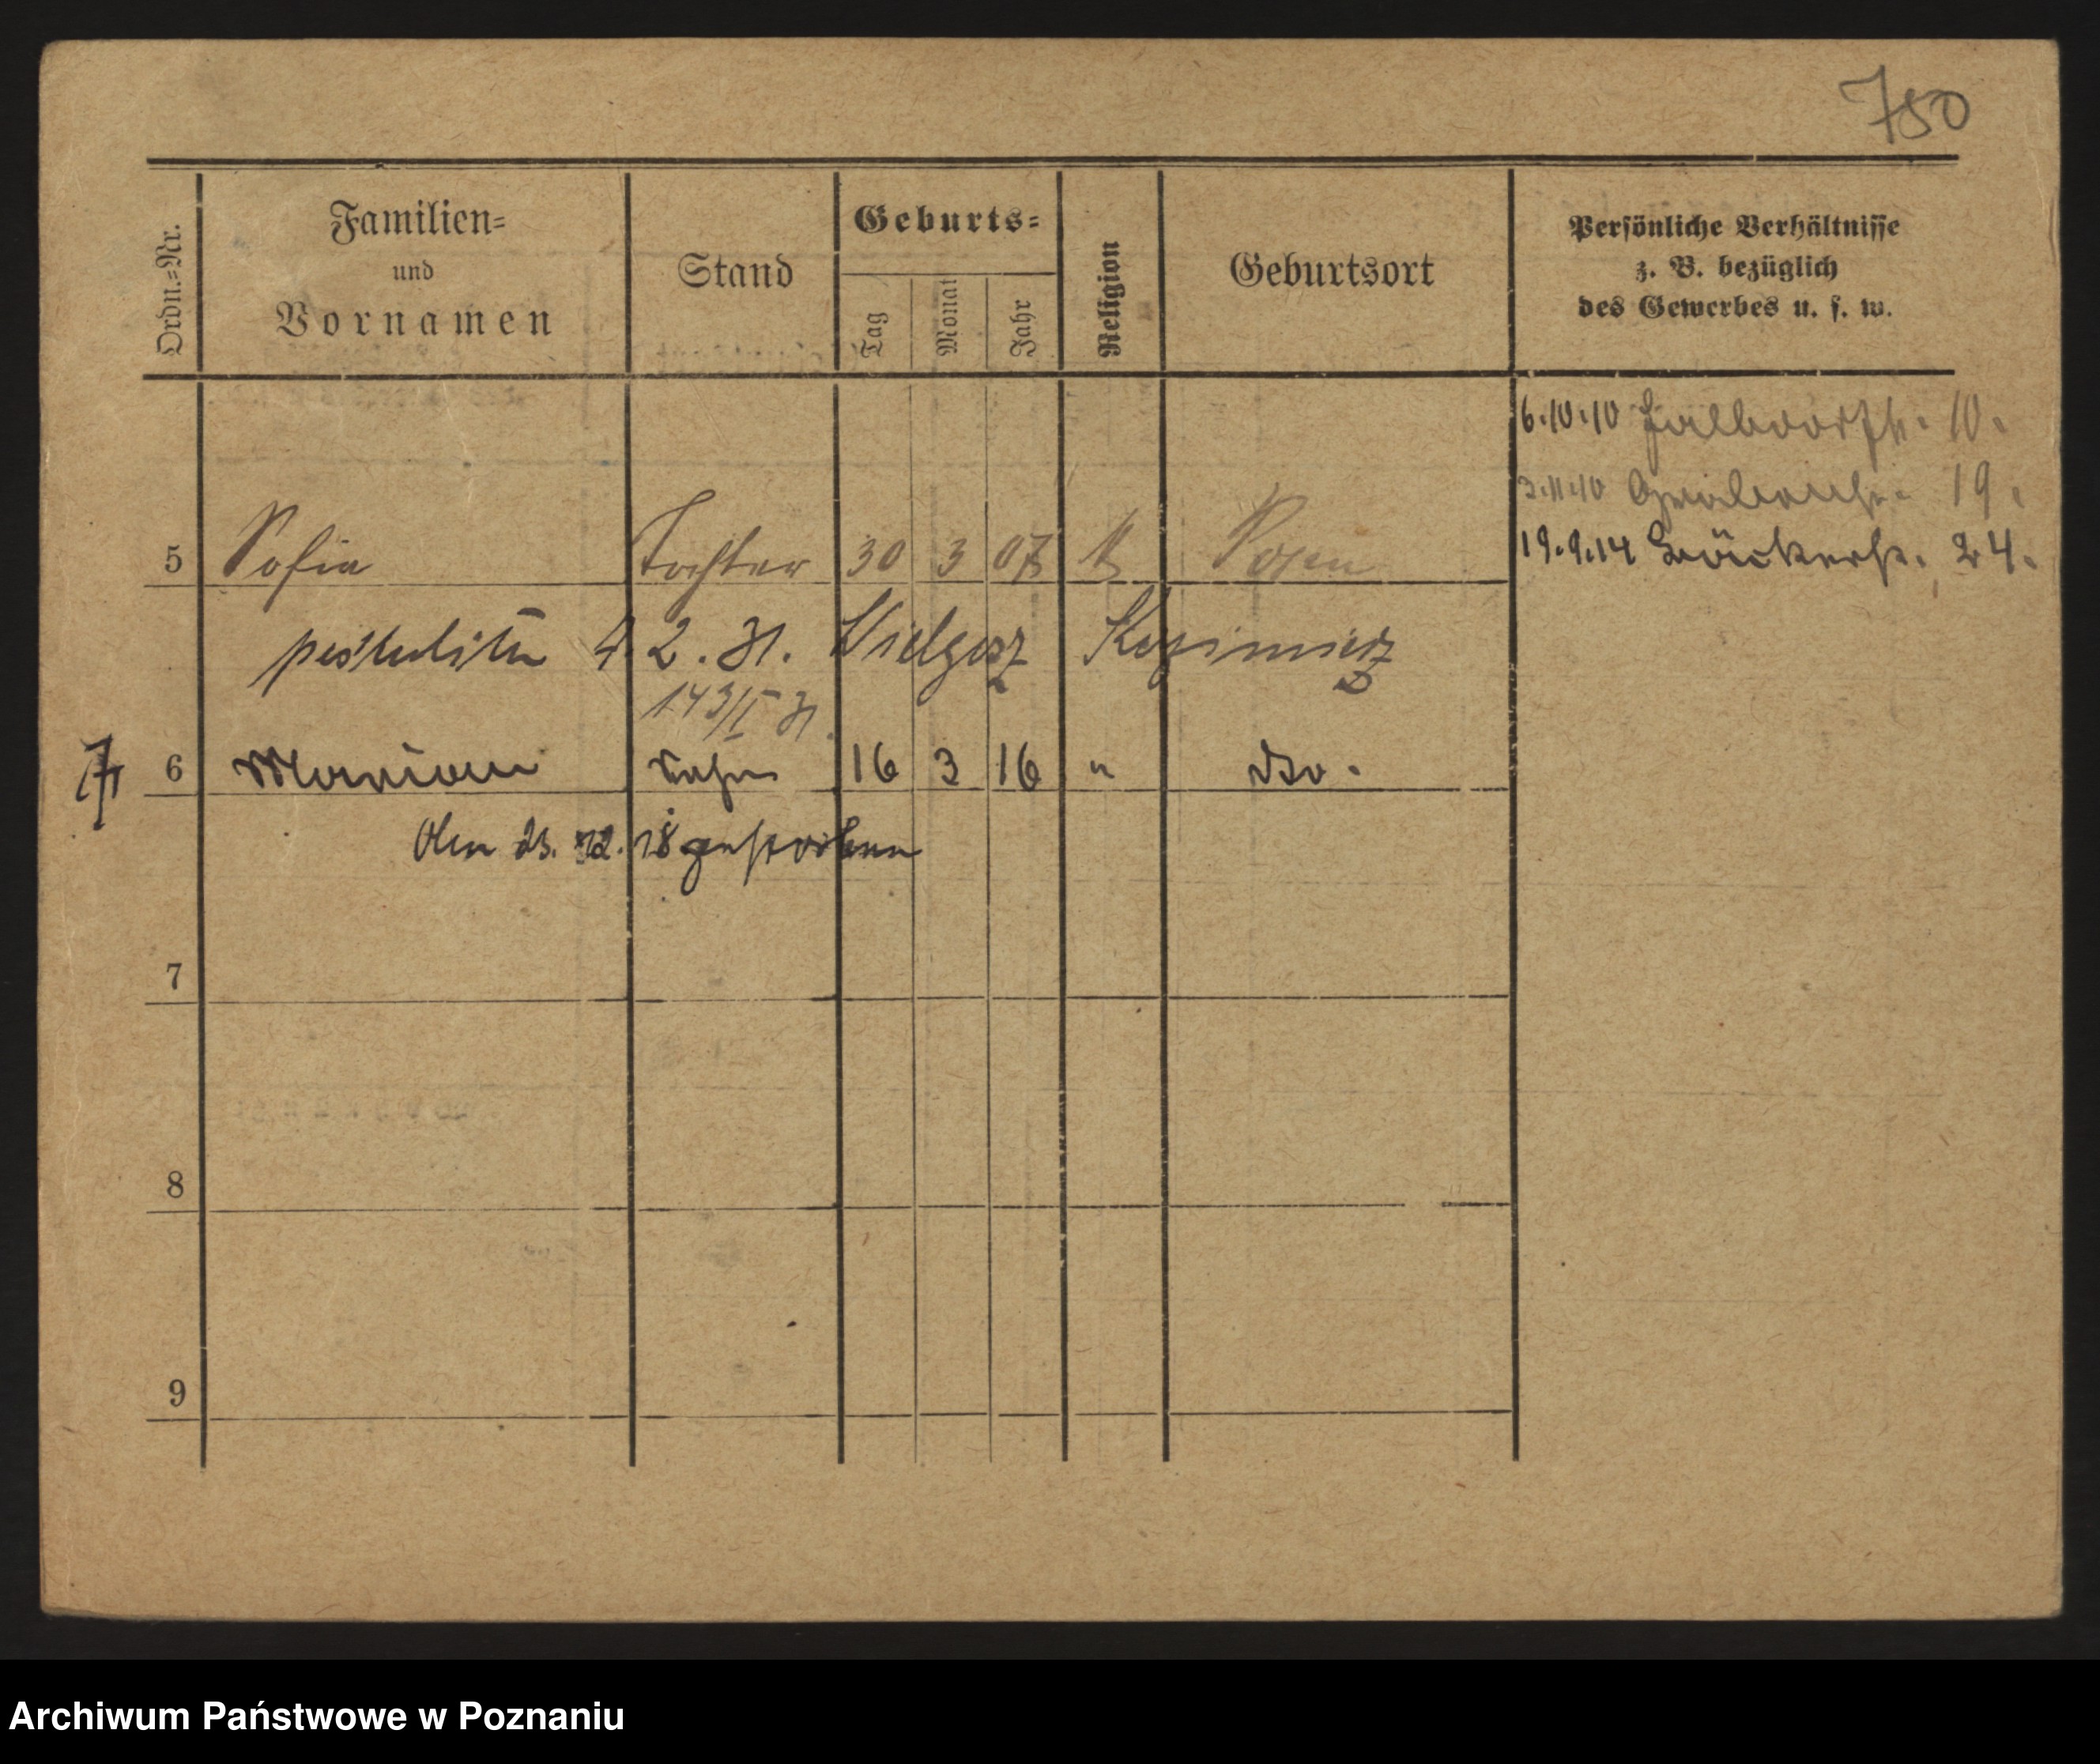 750
Ordn.=Nr.
Familien=
und
Vornamen
Stand
Geburts=
Tag
Monat
Jahr
Religion
Geburtsort
Persönliche Verhältnisse
z. B. bezüglich
des Gewerbes u. s. w.
6.10.10 Halbdorfstr. 10.
3.11.10 Grabenstr. 19.
5 Sofia Tochter 30 3 07 Posen
19.9.14 Bäckerstr. 24.
4. 2. 31. Wielgosz Kazimierz
143/I 31
6 Marian Sohn 16 3 16 " dto.
Am 23. 12. 18 gestorben
7
8
9
Archiwum Państwowe w Poznaniu